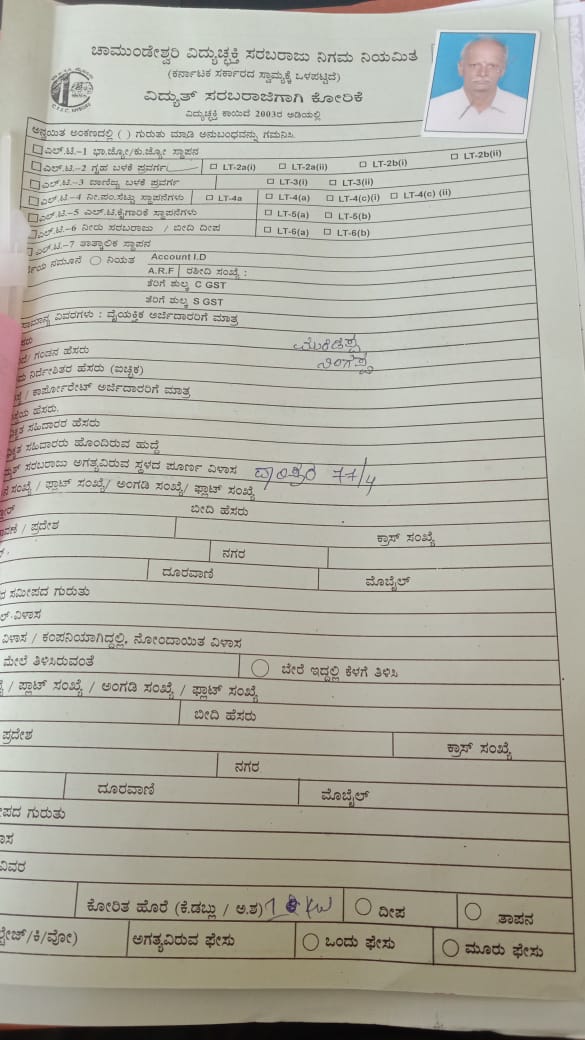 ಚಾಮುಂಡೇಶ್ವರಿ ವಿದ್ಯುಚ್ಛಕ್ತಿ ಸರಬರಾಜು ನಿಗಮ ನಿಯಮಿತ
(ಕರ್ನಾಟಕ ಸರ್ಕಾರದ ಸ್ವಾಮ್ಯಕ್ಕೆ ಒಳಪಟ್ಟಿದೆ)
ವಿದ್ಯುತ್ ಸರಬರಾಜಿಗಾಗಿ ಕೋರಿಕೆ
ವಿದ್ಯುಚ್ಛಕ್ತಿ ಕಾಯಿದೆ 2003ರ ಅಡಿಯಲ್ಲಿ
ಅನ್ವಯಿತ ಅಂಕಣದಲ್ಲಿ ( ) ಗುರುತು ಮಾಡಿ ಅನುಬಂಧವನ್ನು ಗಮನಿಸಿ.
ಎಲ್.ಟಿ.–1 ಭಾ.ಜ್ಯೋ/ಕು.ಜ್ಯೋ ಸ್ಥಾಪನ
ಎಲ್.ಟಿ.–2 ಗೃಹ ಬಳಕೆ ಪ್ರವರ್ಗ LT-2a(i) LT-2a(ii) LT-2b(i) LT-2b(ii)
ಎಲ್.ಟಿ.–3 ವಾಣಿಜ್ಯ ಬಳಕೆ ಪ್ರವರ್ಗ LT-3(i) LT-3(ii)
ಎಲ್.ಟಿ.–4 ನೀ.ಪಂ.ಸೆಟ್ಟು ಸ್ಥಾಪನೆಗಳು LT-4a LT-4(a) LT-4(c)(i) LT-4(c) (ii)
ಎಲ್.ಟಿ.–5 ಎಲ್.ಟಿ.ಕೈಗಾರಿಕೆ ಸ್ಥಾಪನೆಗಳು LT-5(a) LT-5(b)
ಎಲ್.ಟಿ.–6 ನೀರು ಸರಬರಾಜು / ಬೀದಿ ದೀಪ LT-6(a) LT-6(b)
ಎಲ್.ಟಿ.–7 ತಾತ್ಕಾಲಿಕ ಸ್ಥಾಪನ
ನಮೂನೆ ನಿಯತ Account I.D
A.R.F ರಶೀದಿ ಸಂಖ್ಯೆ :
ತೆರಿಗೆ ಶುಲ್ಕ C GST
ತೆರಿಗೆ ಶುಲ್ಕ S GST
ಸಾಮಾನ್ಯ ವಿವರಗಳು : ವೈಯಕ್ತಿಕ ಅರ್ಜಿದಾರರಿಗೆ ಮಾತ್ರ
ಗಂಡನ ಹೆಸರು
ನಿರ್ದೇಶಿತರ ಹೆಸರು (ಐಚ್ಛಿಕ)
/ ಕಾರ್ಪೋರೇಟ್ ಅರ್ಜಿದಾರರಿಗೆ ಮಾತ್ರ
ಹೆಸರು.
ಸಹಿದಾರರ ಹೆಸರು
ಸಹಿದಾರರು ಹೊಂದಿರುವ ಹುದ್ದೆ
ಸರಬರಾಜು ಅಗತ್ಯವಿರುವ ಸ್ಥಳದ ಪೂರ್ಣ ವಿಳಾಸ 77/4
ಸಂಖ್ಯೆ / ಪ್ಲಾಟ್ ಸಂಖ್ಯೆ/ ಅಂಗಡಿ ಸಂಖ್ಯೆ/ ಫ್ಲಾಟ್ ಸಂಖ್ಯೆ
ಬೀದಿ ಹೆಸರು
/ ಪ್ರದೇಶ ಕ್ರಾಸ್ ಸಂಖ್ಯೆ
ನಗರ
ದೂರವಾಣಿ ಮೊಬೈಲ್
ಸಮೀಪದ ಗುರುತು
ವಿಳಾಸ
ವಿಳಾಸ / ಕಂಪನಿಯಾಗಿದ್ದಲ್ಲಿ, ನೋಂದಾಯಿತ ವಿಳಾಸ
ಮೇಲೆ ತಿಳಿಸಿರುವಂತೆ ಬೇರೆ ಇದ್ದಲ್ಲಿ ಕೆಳಗೆ ತಿಳಿಸಿ
/ ಪ್ಲಾಟ್ ಸಂಖ್ಯೆ / ಅಂಗಡಿ ಸಂಖ್ಯೆ / ಫ್ಲಾಟ್ ಸಂಖ್ಯೆ
ಬೀದಿ ಹೆಸರು
ಪ್ರದೇಶ ಕ್ರಾಸ್ ಸಂಖ್ಯೆ
ನಗರ
ದೂರವಾಣಿ ಮೊಬೈಲ್
ಗುರುತು
ವಿವರ
ಕೋರಿತ ಹೊರೆ (ಕೆ.ಡಬ್ಲು / ಅ.ಶ) ದೀಪ ತಾಪನ
ಅಗತ್ಯವಿರುವ ಫೇಸು ಒಂದು ಫೇಸು ಮೂರು ಫೇಸು